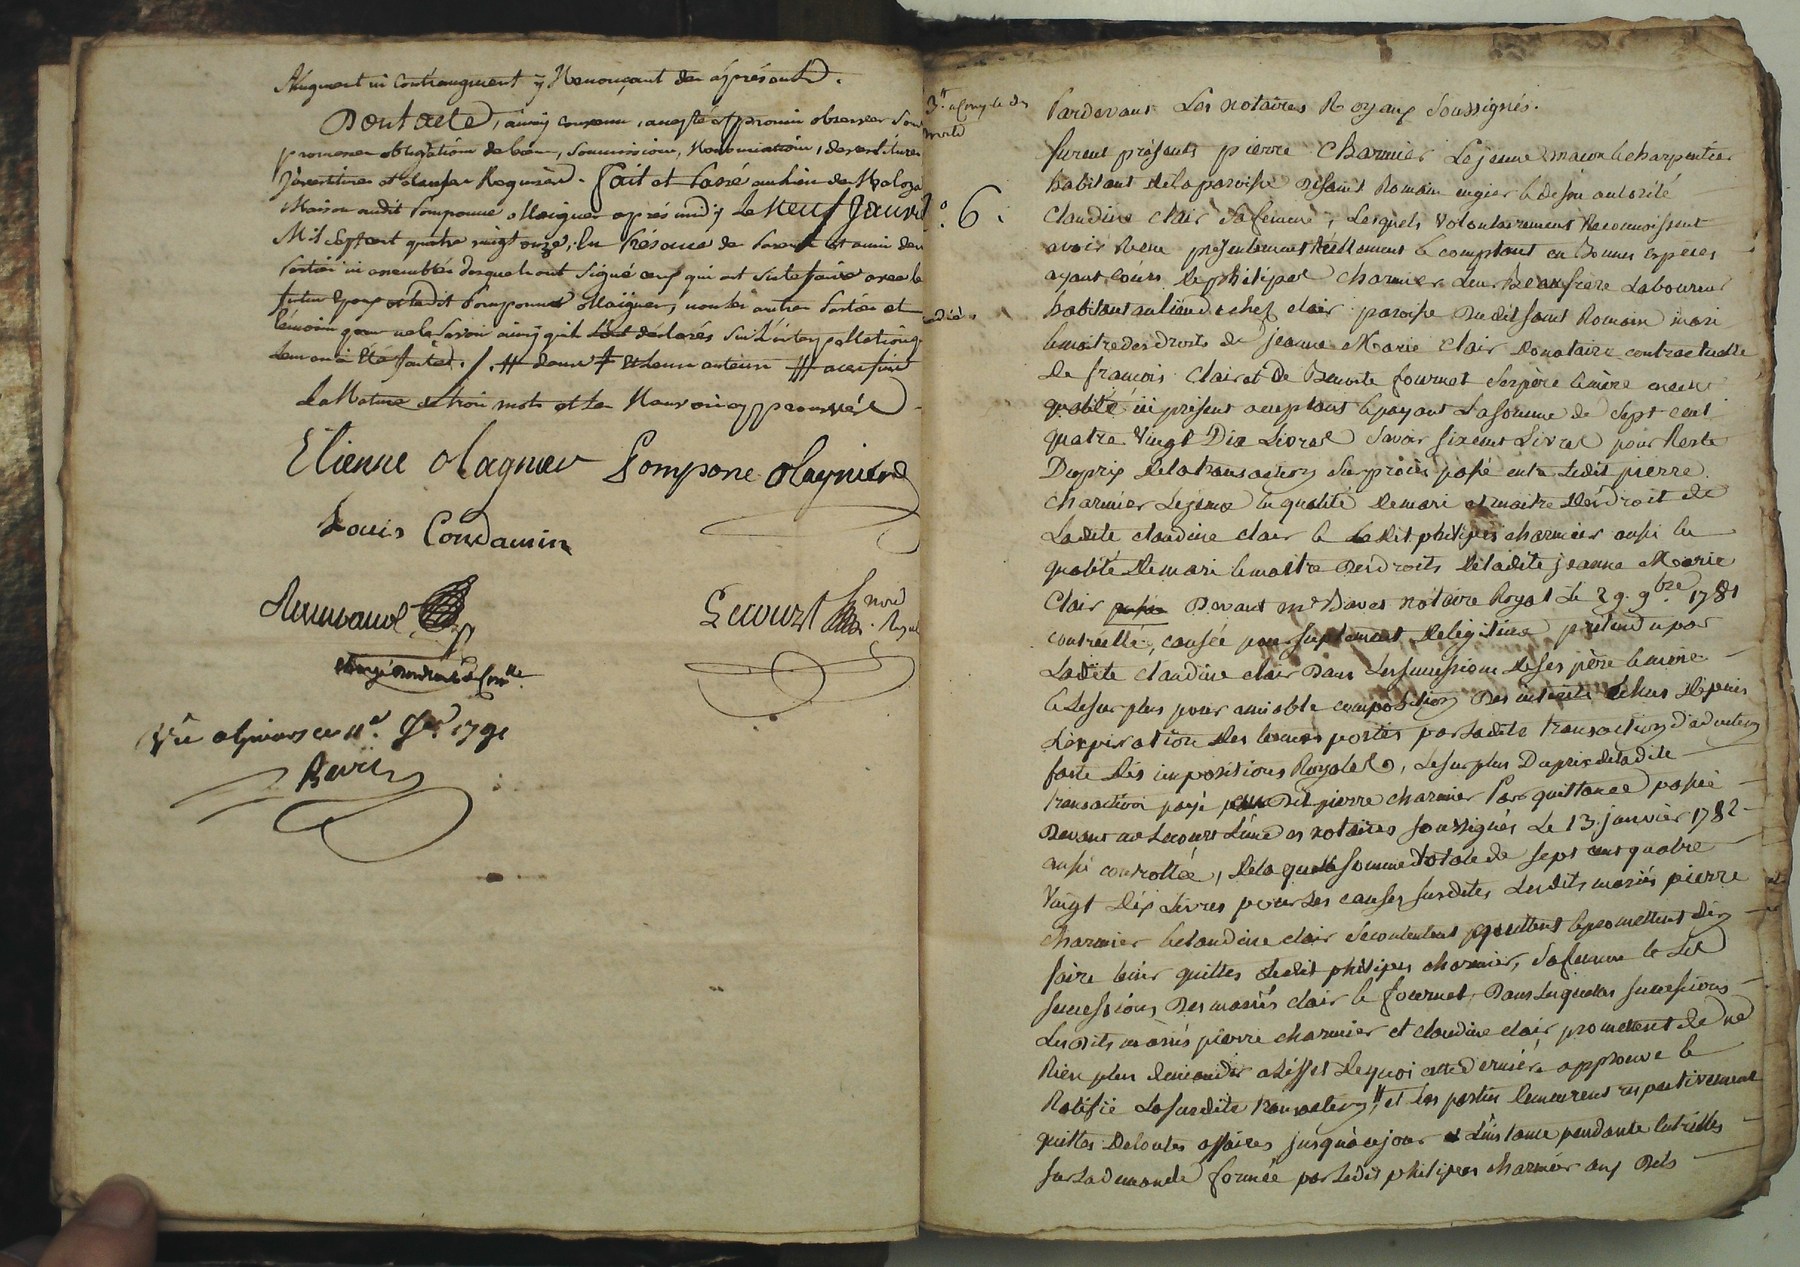 ni contraignent y Renonçant des àprésent.
Dont acte, ainsy convenu, accepté et promis observer sous
promesse obligations de biens, soumissions, Renonciations, desvestitures
jnvestitures et clauses Requises. fait et passé au lieu de
Maison audit Pomponne Magnier après midy Le Neuf Janvi
Mil Sept cent quatre vingt onze, En Présence de Parents et amis des
Parties ici assemblés desquels ont signé ceux qui ont sceu le faire avec le
futur Epoux et ledit Pomponne Magnier, non les autres Parties et
témoins pour ne le savoir ainsy qu'ils l'ont déclarés sur L'interpellation q.
Leur en a été faite ./. # deux # #
La Rature de trois mots et Les Renvois approuvés
Etienne Magnier Pompone Magnier
Louis Condamin
Lecourt Nore Royal
Vu à 11e Jer 1791
3tt
6.
Pardevant Les notaires Royaux Soussignés.
furent présents pierre Charmier Lejeune macon & charpentier
habitant de la paroisse de saint Romain en gier & de son autorité
Claudine Clair Sa femme, Lesquels volontairement Reconnoissent
avoir Receu présentement Réellement & comptant en Bonnes Espèces
ayant cours de philipes Charmier Leur Beaufrère Laboureur
habitant au lieu de chez clair paroisse dudit saint Romain mari
& maitre des droits de jeanne Marie Clair donataire contractuelle
de francois Clair et de Benoite fournet Ses père & mère en cette
qualité ici présent acceptant & payant La somme de Sept cent
quatre Vingt Dix Livres Savoir six cent Livres pour Reste
Du prix de la transaction Sur procès passé entre Ledit pierre
charmier Lejeune en qualité de mari et maitre des droit de
Ladite claudine clair & Ledit philipes charmier aussi en
qualité de mari & maitre des droits de ladite jeanne Marie
Clair Devant me notaire Royal Le 29 9bre 1781
controllé, causée pour suplement de légitime prétendu par
Ladite claudine clair Dans Les successions de ses père & mère
& le surplus pour amiable composition Des intérêts échus Depuis
L'expiration des termes portés par Ladite transaction déduction
faite des impositions Royales, Le surplus Du prix de ladite
transaction payé audit pierre charmier Par quittance passée
Devant me Lecourt L'un des notaires soussignés Le 13 janvier 1782
aussi controllée, de laquelle somme totale de sept cent quatre
Vingt dix Livres pour Les causes susdites Lesdits mariés pierre
charmier & claudine clair se contentent quittent & promettent d'en
faire tenir quittes Ledit philipes charmier, Sa femme & Les
successions Des mariés clair & fournet, Dans Lesquelles successions
Lesdits mariés pierre charmier et claudine clair promettent de ne
Rien plus demander à L'effet de quoi cette dernière approuve &
Ratifie La susdite transaction # et Les parties demeurent respectivement
quittes De toutes affaires jusqu'à ce jour L'instance pendante Entr'elles
sur La demande formée par Ledit philipes charmier aux Dits